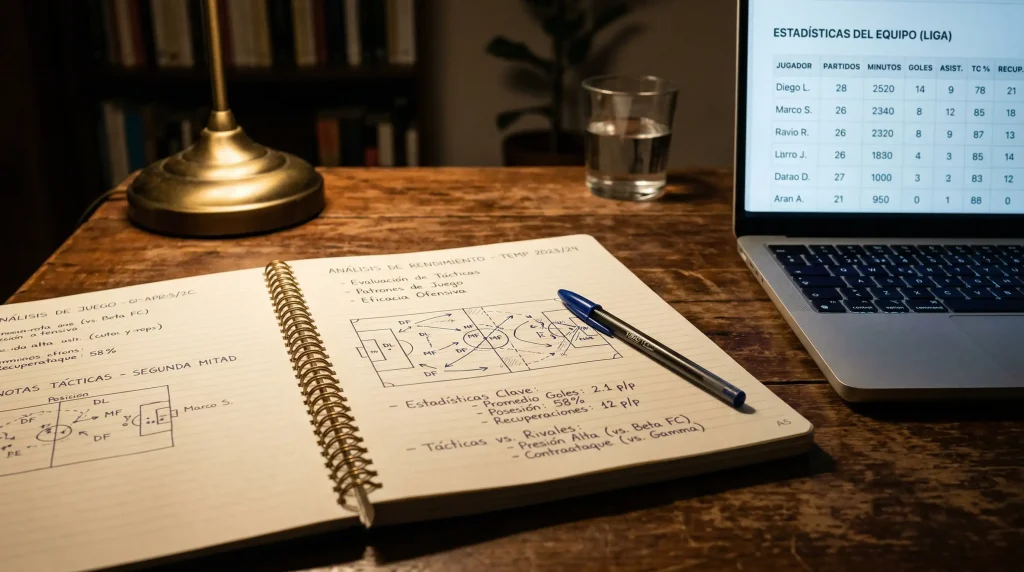 ANÁLISIS DE JUEGO -
(vs. Beta FC)
58%
NOTAS TÁCTICAS - SEGUNDA MITAD
Posición
DL
DF
MF
Marco S.
DF
ANÁLISIS DE RENDIMIENTO - TEMP 2023/24
- Evaluación de Tácticas
- Patrones de Juego
- Eficacia Ofensiva
DF
DL
MF
DL
MF
DF
MF
DF
- Estadísticas Clave:
- Promedio Goles: 2.1 p/p
- Posesión: 58%
- Recuperaciones: 12 p/p
- Tácticas vs. Rivales:
- Presión Alta (vs. Beta FC)
- Contraataque (vs. Gamma)
ESTADÍSTICAS DEL EQUIPO (LIGA)
JUGADOR PARTIDOS MINUTOS GOLES ASIST. TC % RECUP.
Diego L. 28 2520 14 9 78 21
Marco S. 26 2340 8 12 85 18
Ravio R. 26 2320 8 9 87 13
Larro J. 26 1830 4 3 85 14
Darao D. 27 1000 3 2 83 12
Aran A. 21 950 0 1 88 0